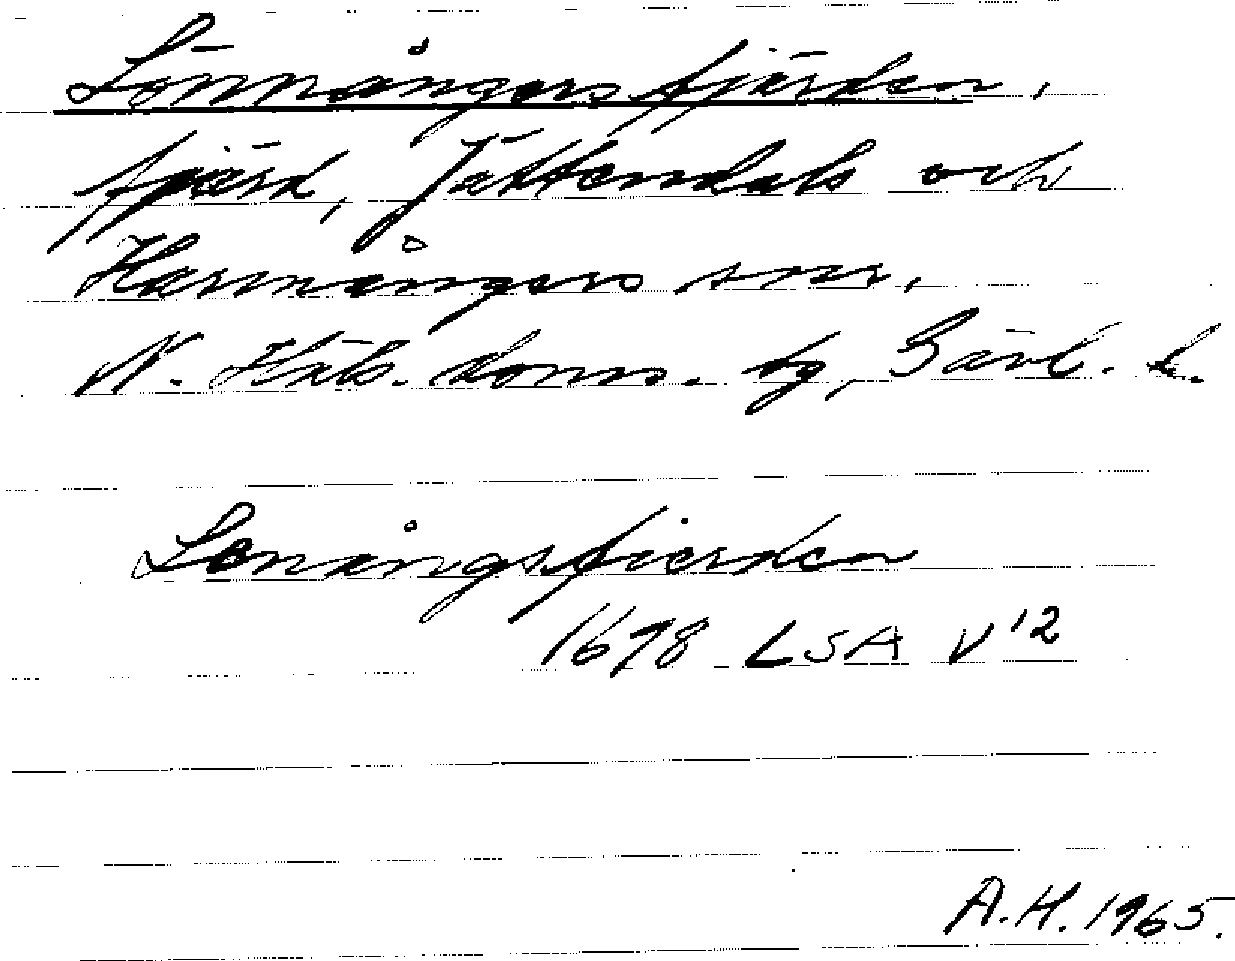 Lönnångersfjärden,
fjärd, Jättendals och
Harmångers snr.
N. Häls. doms. tg, Gävl. l.
Lonångsfierden
1678 LSA V 12
A.H. 1965.